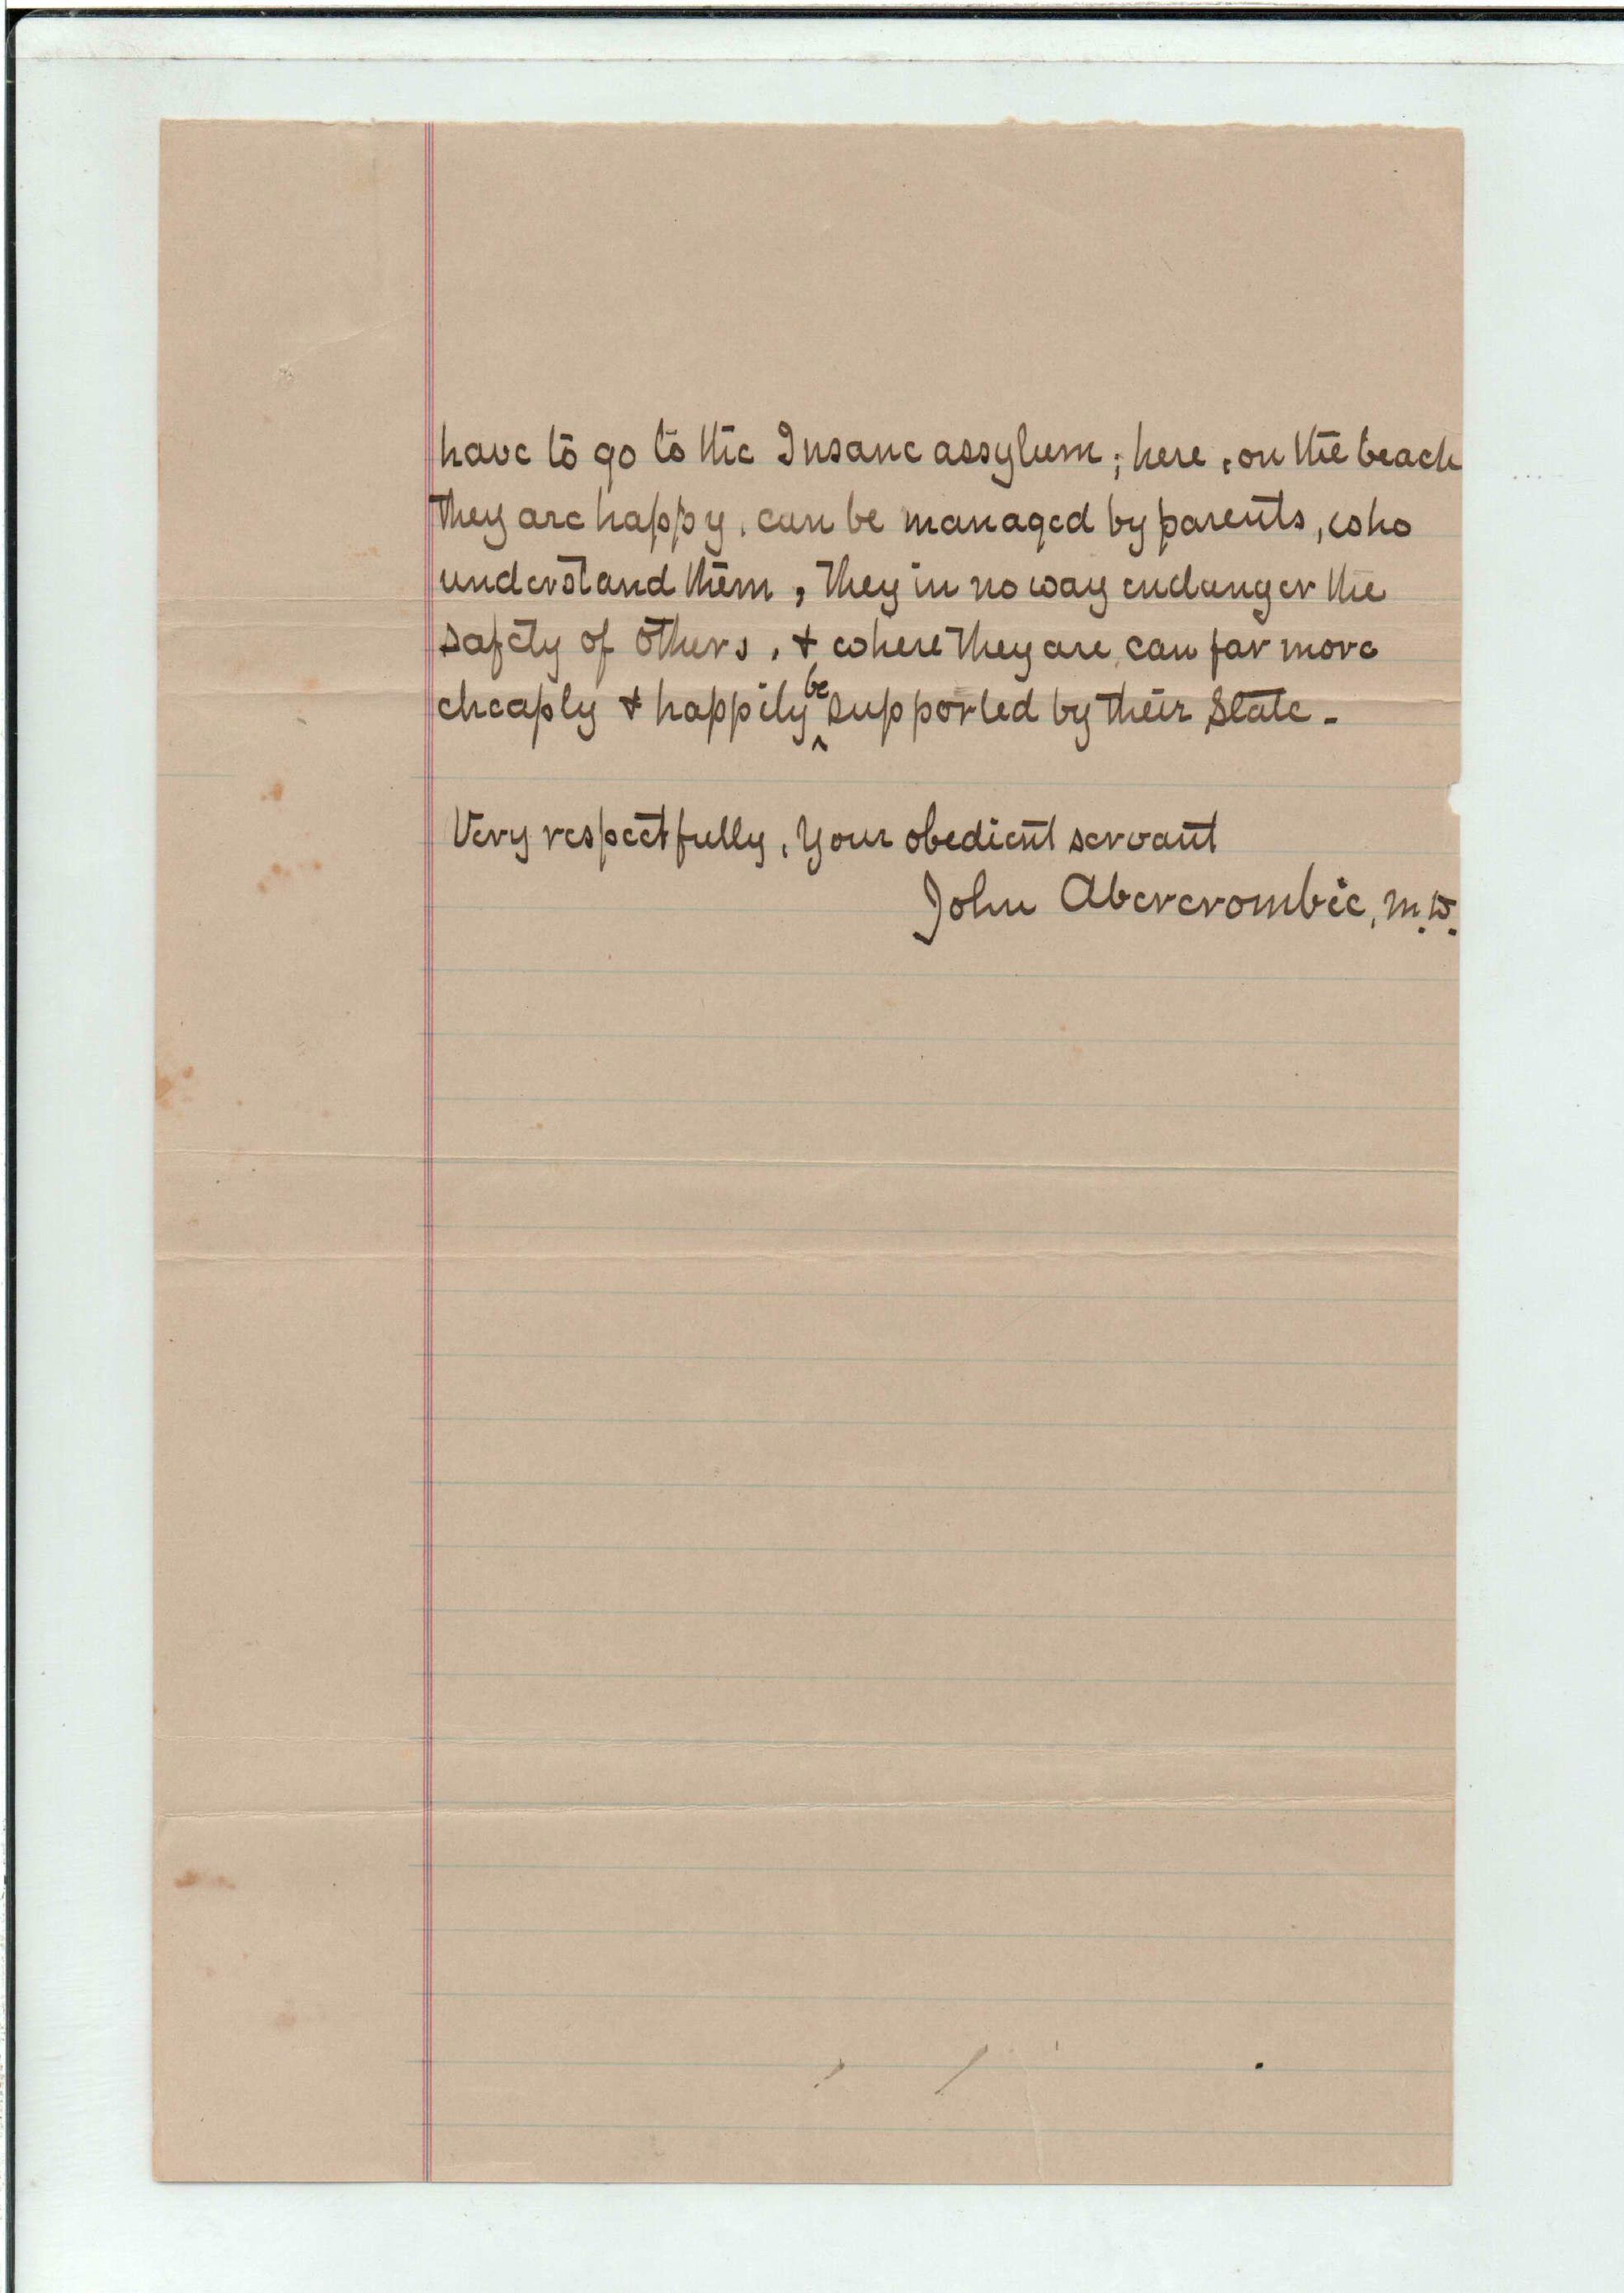 have to go to the Insane assylum; here, on the beach
they are happy, can be managed by parents, who
understand them, they in no way endanger the
safety of others, & where they are, can far more
cheaply & happily be supported by their State -
Very respectfully, your obedient servant
John Abercrombie, M.D.